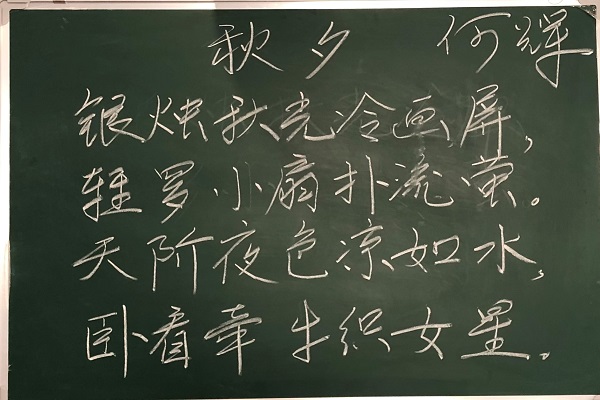 秋夕 何辉
银烛秋光冷画屏,
轻罗小扇扑流萤。
天阶夜色凉如水,
卧看牵牛织女星.